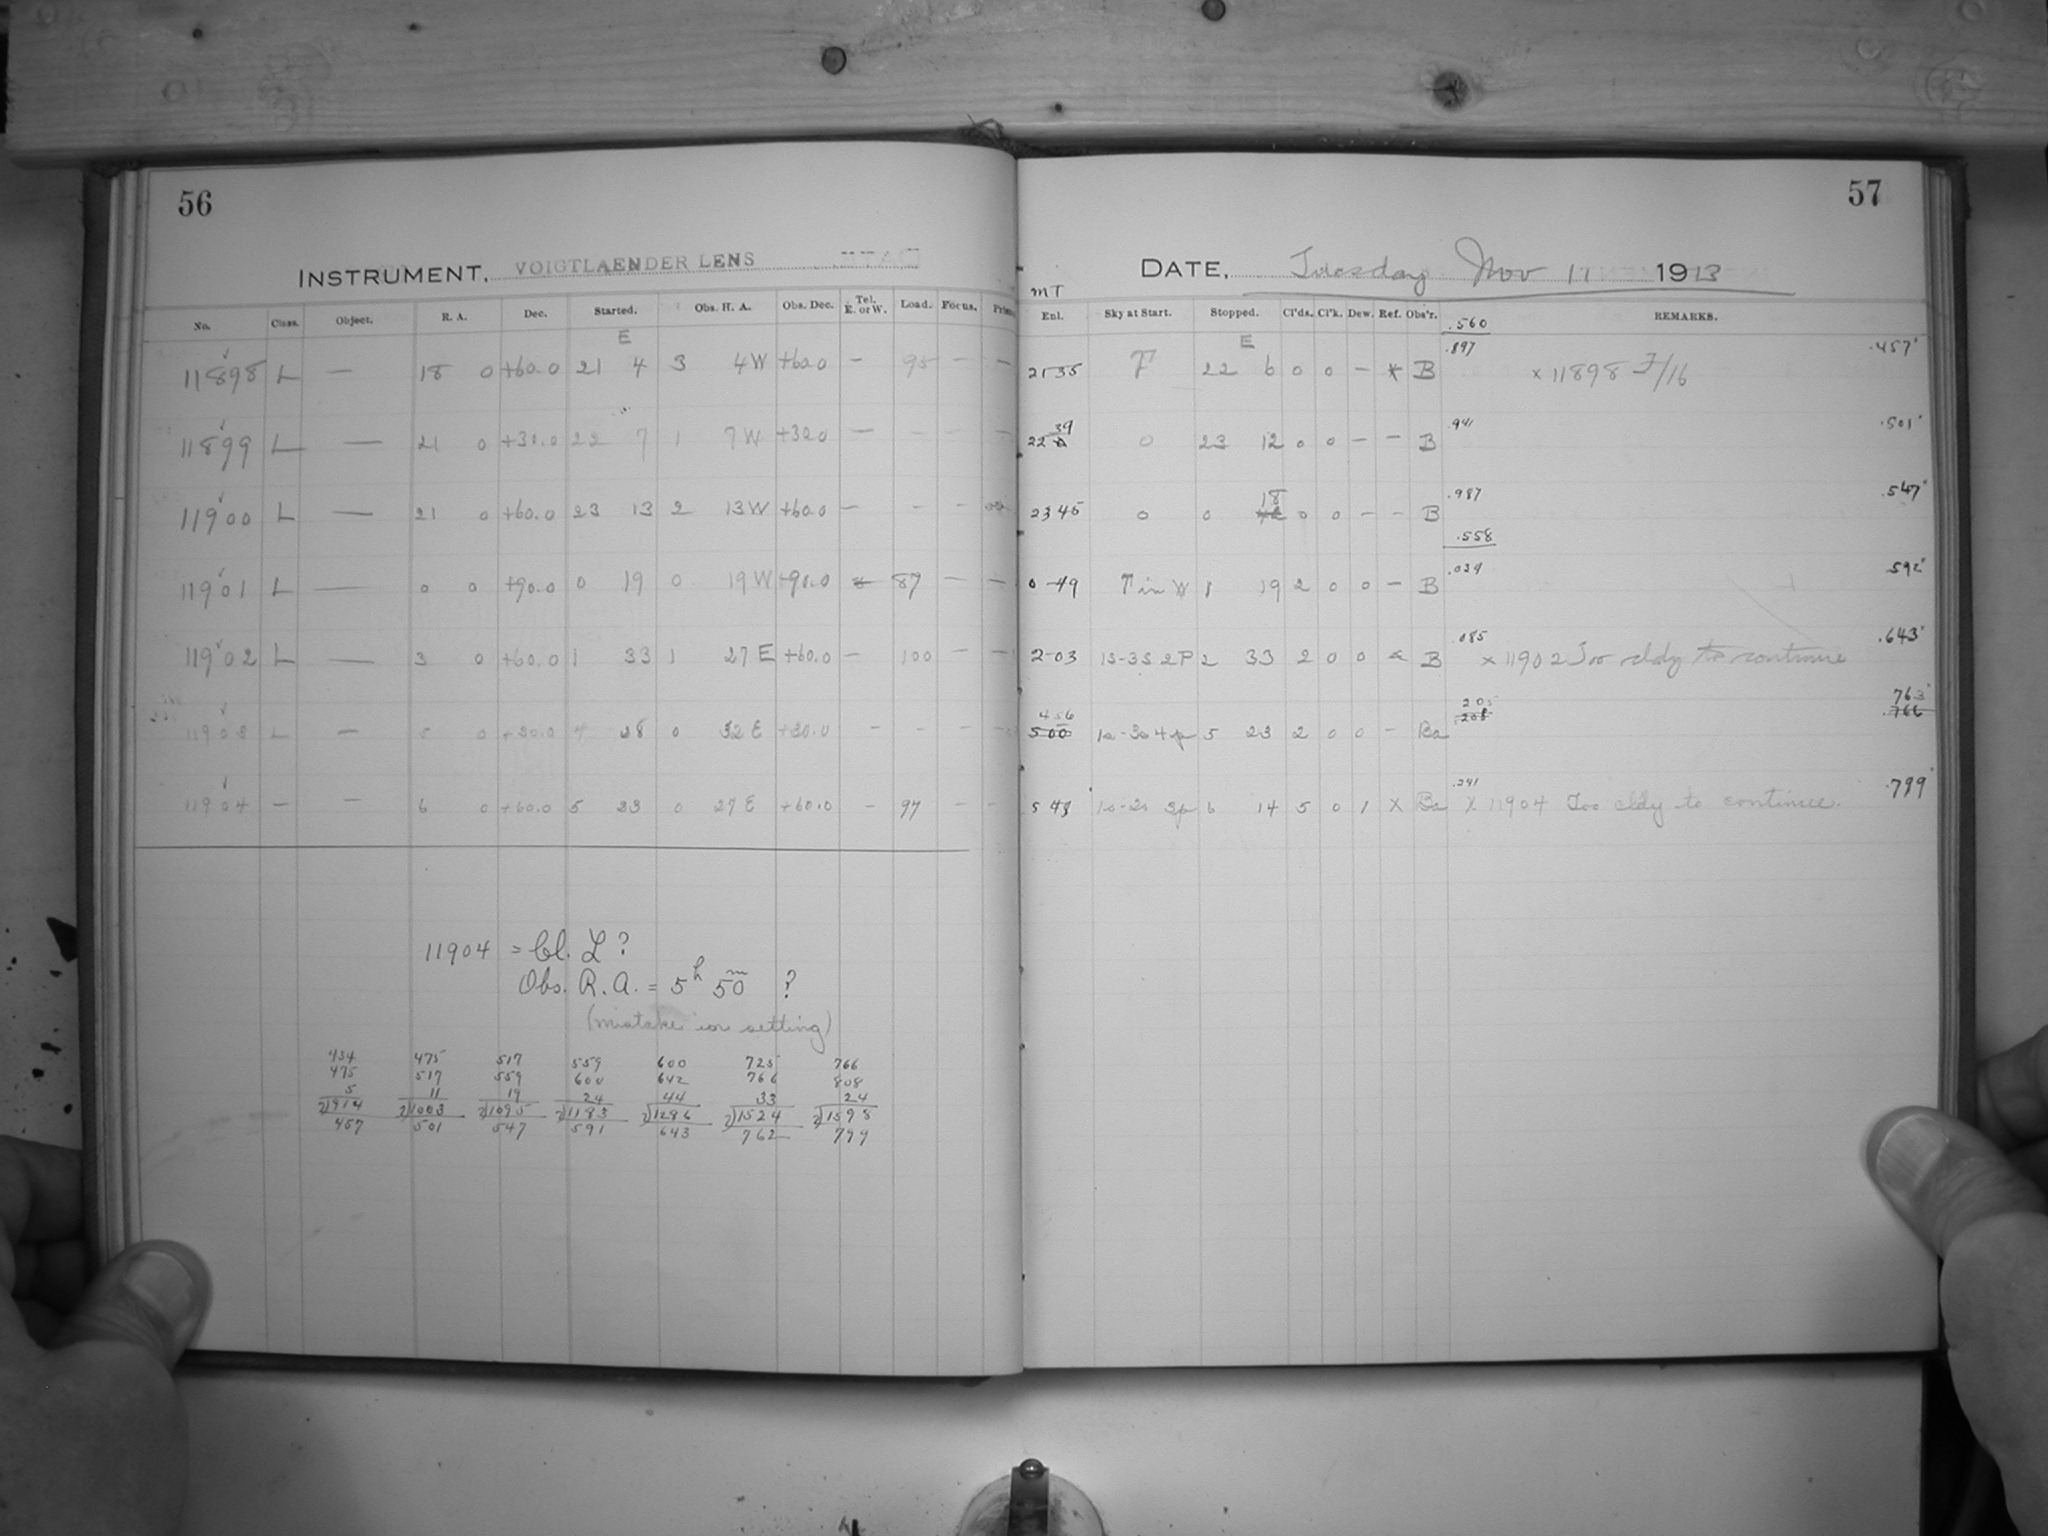 56
INSTRUMENT, VOIGTLAENDER LENS
No. Class. Object. R. A. Dec. Started. Obs. H. A. Obs. Dec. Tel. E. or W. Load. Focus.
E
11898 L — 18 0 +60.0 21 4 3 4W +60.0 — 95 — —
11899 L — 21 0 +30.0 22 7 1 7W +30.0 — — — —
11900 L — 21 0 +60.0 23 13 2 13W +60.0 — — —
11901 L — 0 0 +90.0 0 19 0 19W +90.0 87 — —
11902 L — 3 0 +60.0 1 33 1 27E +60.0 — 100 — —
11903 L — 5 0 +30.0 4 28 0 32E +30.0 — — — —
11904 — — 6 0 +60.0 5 33 0 27E +60.0 — 97 — —
11904 = Cl. L?
Obs. R.A. = 5h 50m ?
(mistake in setting)
434 475 517 559 600 725 766
475 517 559 600 642 766 808
5 11 19 24 44 33 24
2)914 2)1003 2)1095 2)1183 2)1286 2)1524 2)1598
457 501 547 591 643 762 799
57
DATE, Tuesday Nov 11 1913
MT
Enl. Sky at Start. Stopped. Cl'ds. Cl'k. Dew. Ref. Obs'r. REMARKS.
.560
E
.897 .457
21 35 F 22 6 0 0 — * B x 11898 F/16
.941 .501
22 39 0 23 12 0 0 — — B
.987 .547
23 45 0 0 18 0 0 — — B
.558
.034 .592
0 49 F in W 1 19 2 0 0 — B
.085 .643
2-03 1s-3s 2P 2 33 2 0 0 B x 11902 Too cldy to continue
205 763
.208 .766
4 56
5 00 1s-3s 4p 5 23 2 0 0 — Ba
.241 .799
5 43 1s-2s 3p 6 14 5 0 1 X Ba X 11904 Too cldy to continue.